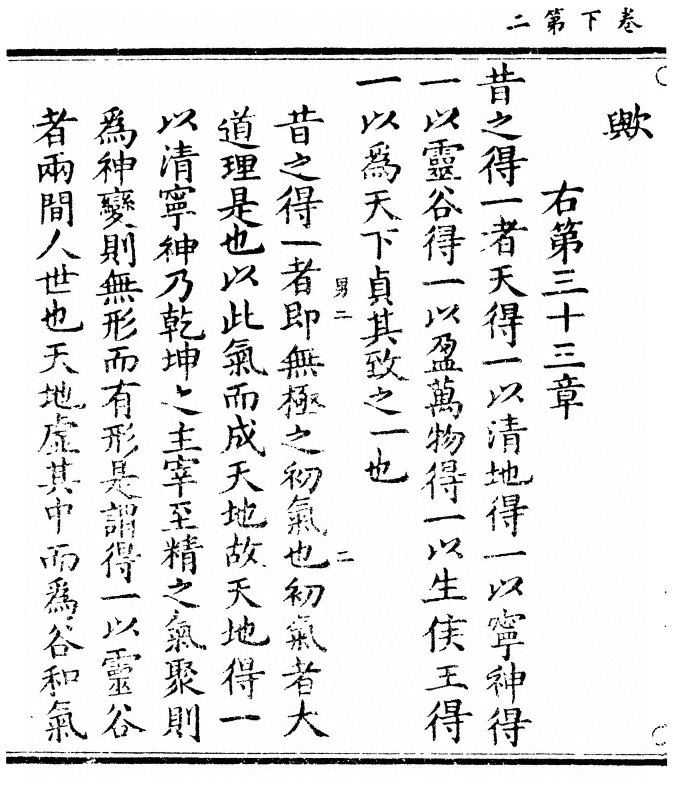 卷下第二
歟
右第三十三章
昔之得一者天得一以清地得一以寧神得
一以靈谷得一以盈萬物得一以生侯王得
一以為天下貞其致之一也
男二
二
昔之得一者即無極之初氣也初氣者大
道理是也以此氣而成天地故天地得一
以清寧神乃乾坤之主宰至精之氣聚則
為神變則無形而有形是謂得一以靈谷
者兩間人世也天地虛其中而為谷和氣